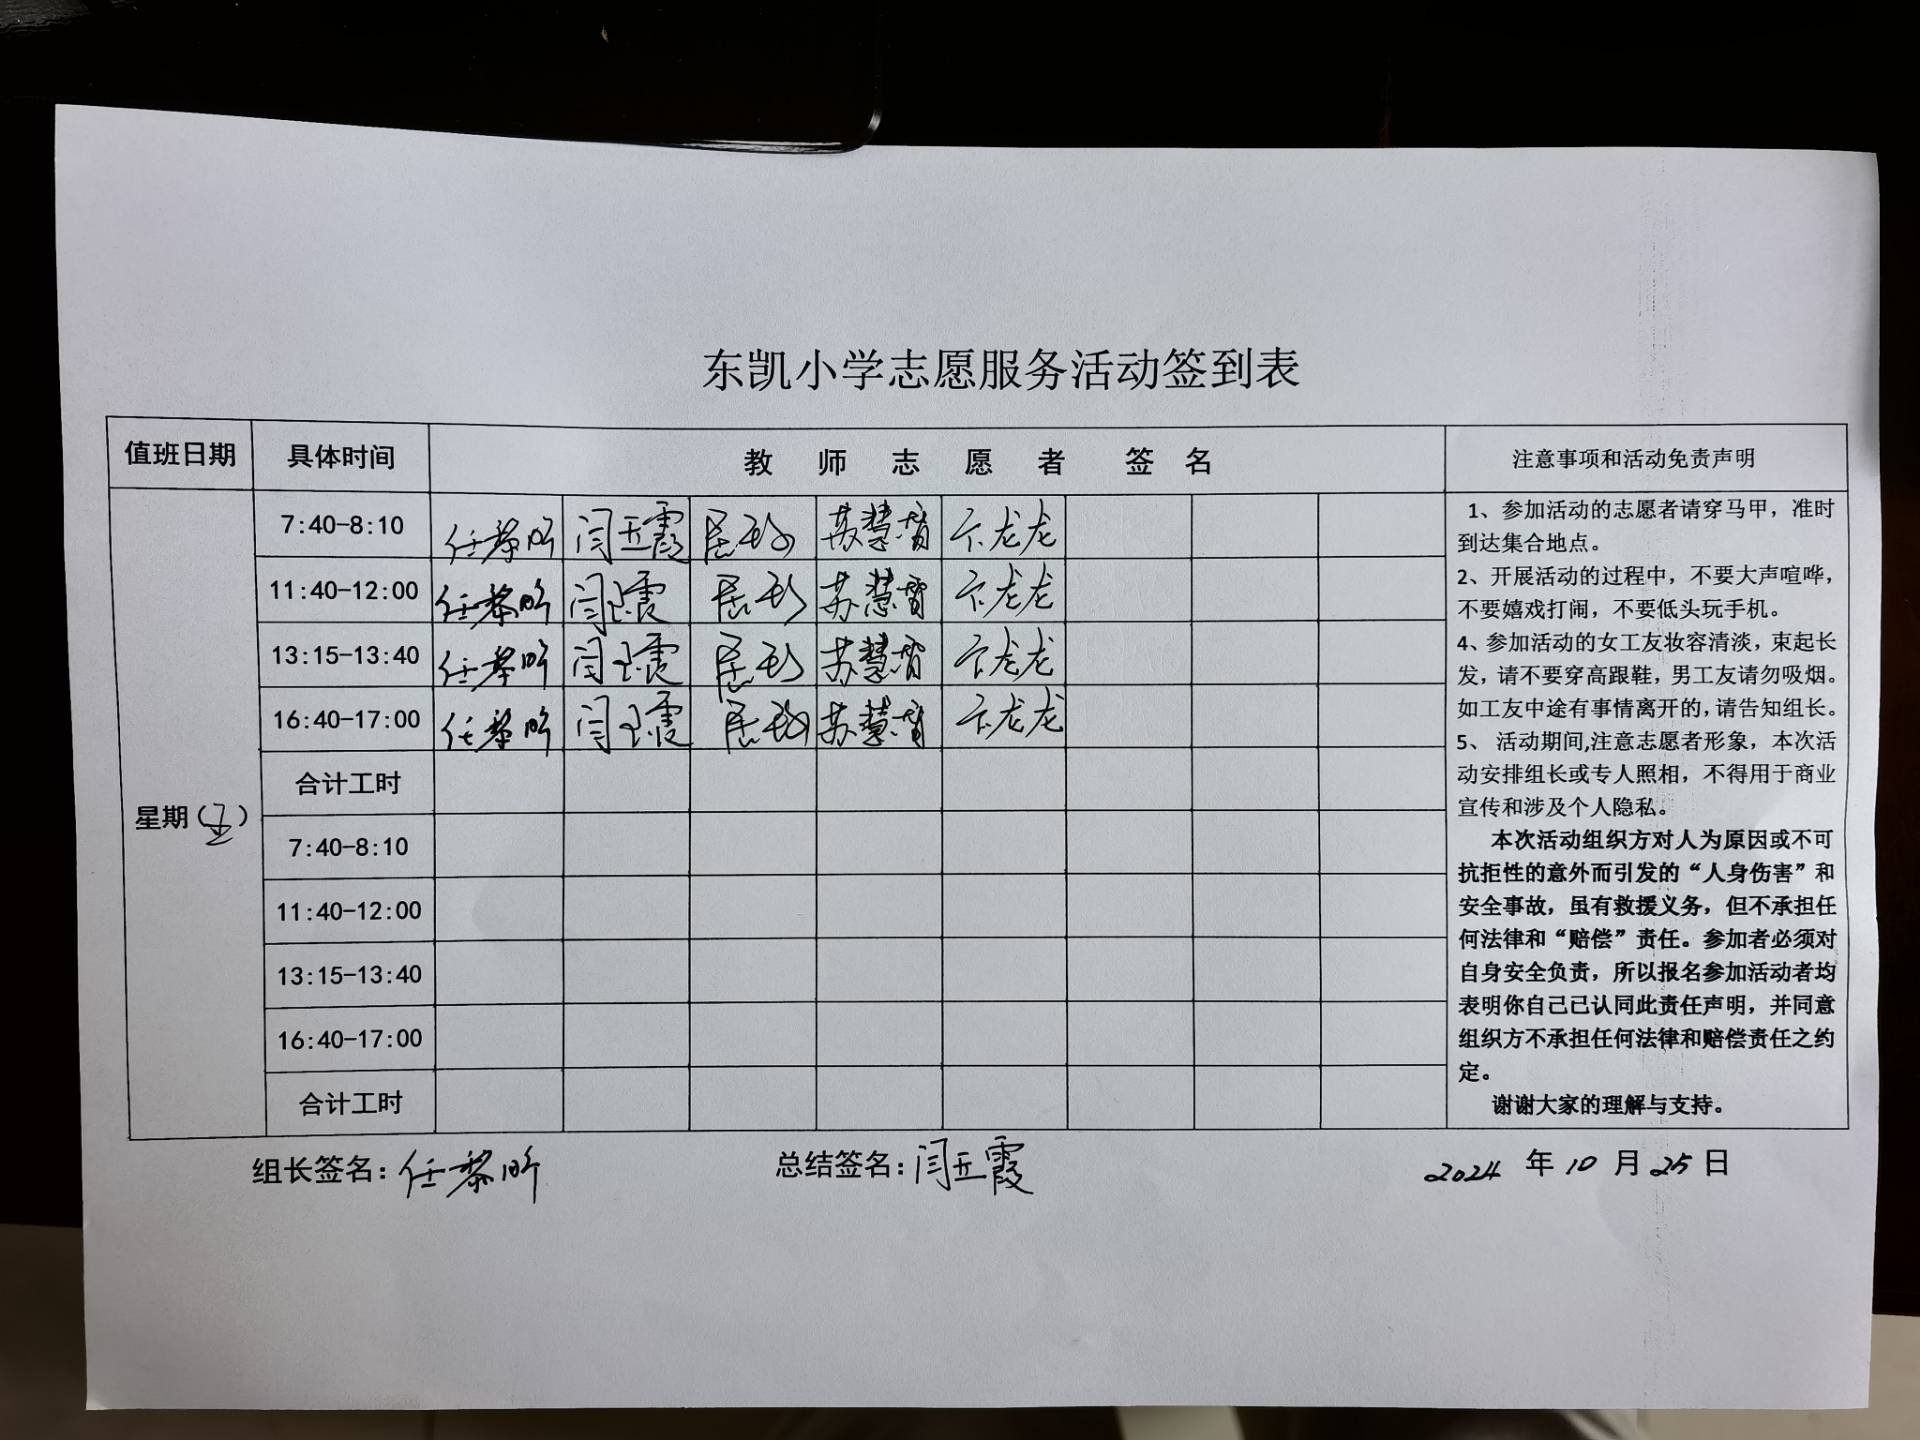 东凯小学志愿服务活动签到表
值班日期 具体时间 教师志愿者 签名 注意事项和活动免责声明
星期（五）
7:40-8:10 任黎昕 闫玉霞 苏慧 卞龙龙
11:40-12:00 任黎昕 闫玉霞 苏慧 卞龙龙
13:15-13:40 任黎昕 闫玉霞 苏慧 卞龙龙
16:40-17:00 任黎昕 闫玉霞 苏慧 卞龙龙
合计工时
7:40-8:10
11:40-12:00
13:15-13:40
16:40-17:00
合计工时
1、参加活动的志愿者请穿马甲，准时
到达集合地点。
2、开展活动的过程中，不要大声喧哗，
不要嬉戏打闹，不要低头玩手机。
4、参加活动的女工友妆容清淡，束起长
发，请不要穿高跟鞋，男工友请勿吸烟。
如工友中途有事情离开的，请告知组长。
5、 活动期间,注意志愿者形象，本次活
动安排组长或专人照相，不得用于商业
宣传和涉及个人隐私。
本次活动组织方对人为原因或不可
抗拒性的意外而引发的“人身伤害”和
安全事故，虽有救援义务，但不承担任
何法律和“赔偿”责任。参加者必须对
自身安全负责，所以报名参加活动者均
表明你自己已认同此责任声明，并同意
组织方不承担任何法律和赔偿责任之约
定。
谢谢大家的理解与支持。
组长签名：任黎昕 总结签名：闫玉霞 2024 年 10 月 25 日